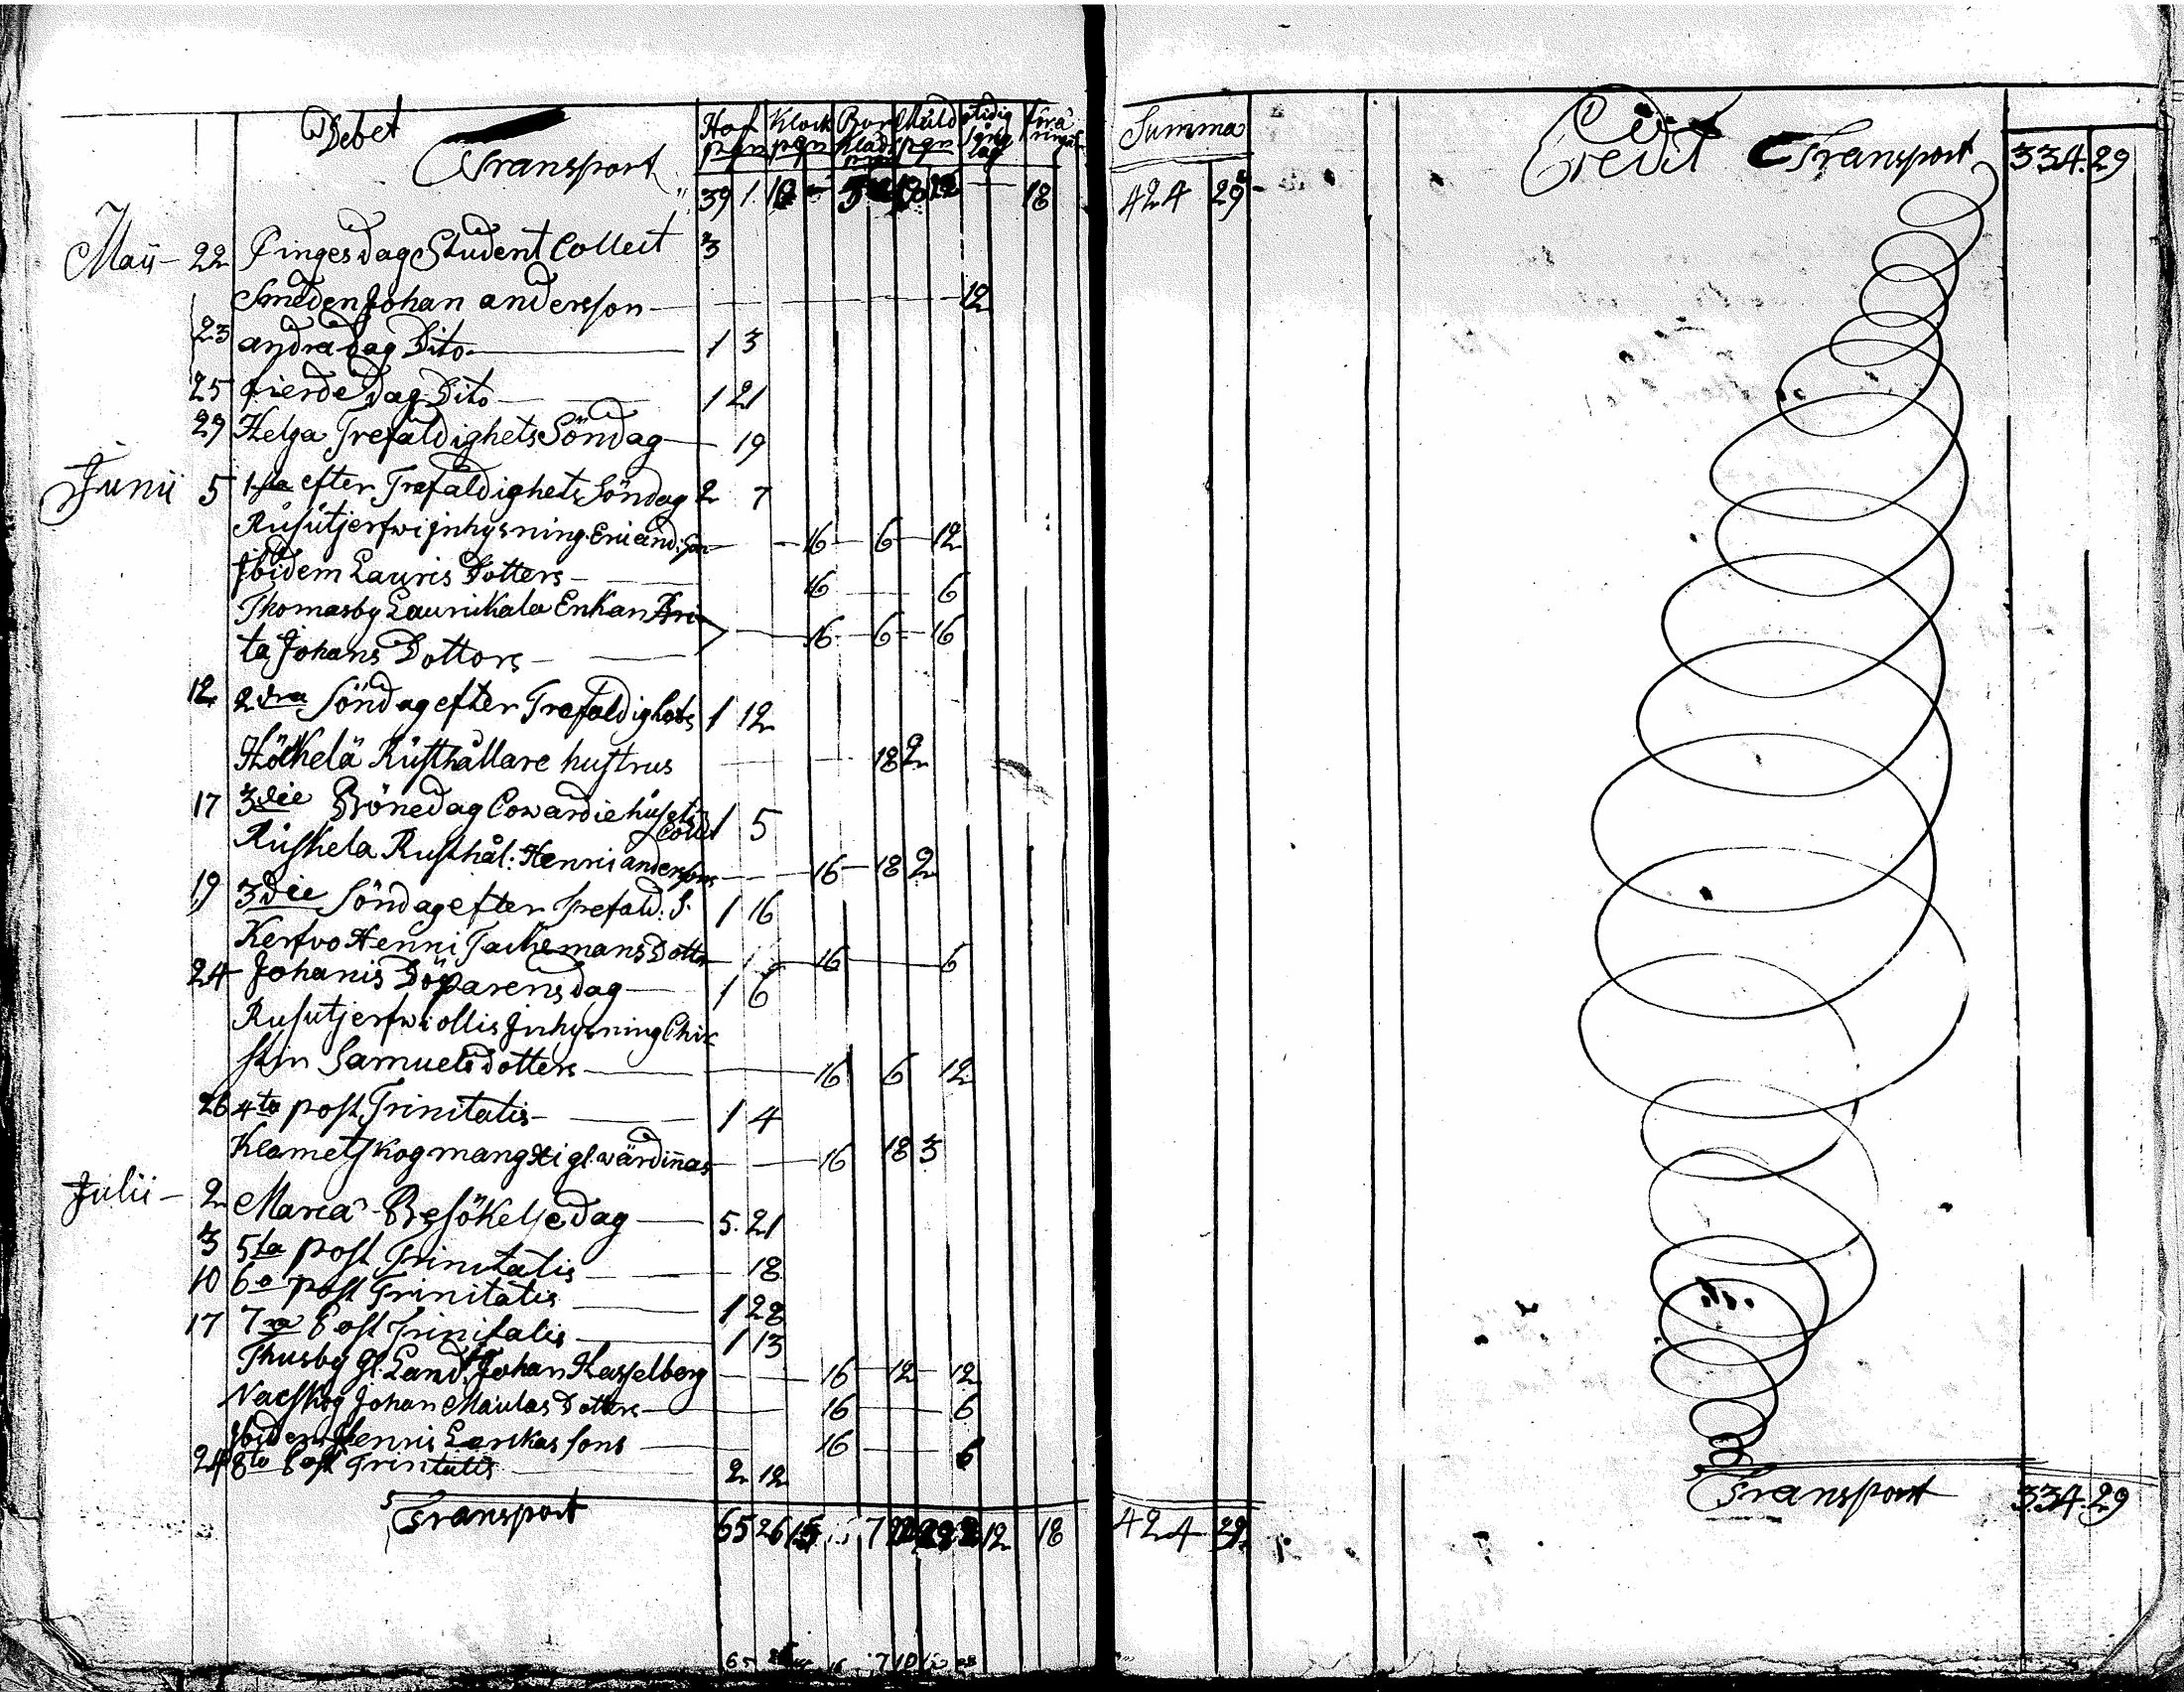 Debet
Transport
Håf pgr Klock pgr
Summa
39 1 18
424 29
Credit Transport 334. 29
Maij - 22 Pingesdag Student Collect 3
Smeden Johan andersson 12
23 andra dag Dito 1 3
25 fierde dag Dito 1 21
29 Helga Trefaldighets Söndag 19
Junii 5 1sta efter Trefaldighets Söndag 2 7
Rusutjerfwi jnhysning 16 6 12
Jbidem Lauris Dotters 16 6
Thomasby Launikala Enkan Bri
ta Johans Dotters 16 6 16
12 2dra Söndag efter Trefaldighets 1 12
Hötkelä Rusthållare hustrus 18 2
17 3die Bönedag 1 5
Ruskela Rusthål: Henric anderssons 16 18 2
19 3die Söndag efter Trefald: S. 1 16
Kerfvo Henric Dotter 16 6
24 Johanis Döparens dag 1 6
Rusutjerfwi ollis Jnhysning Chir
stin Samuels dotters 16 6 12
26 4to post Trinitatis 1 4
Klametskog wärdinnas 16 18 3
Julii - 2 Mariä Besökelse dag 5. 21
3 5ta post Trinitatis 18
10 6o post Trinitatis 1 28
17 7ma Post Trinitalis 1 13
Thusby Johan Hasselberg 16 12 12
Nackskog Johan Maulas Dotters 16 6
Jbidem Henric sons 16 6
24 8to Post Trinitatis 2 12
Transport 65 26 12 18
424 29.
Transport 334. 29